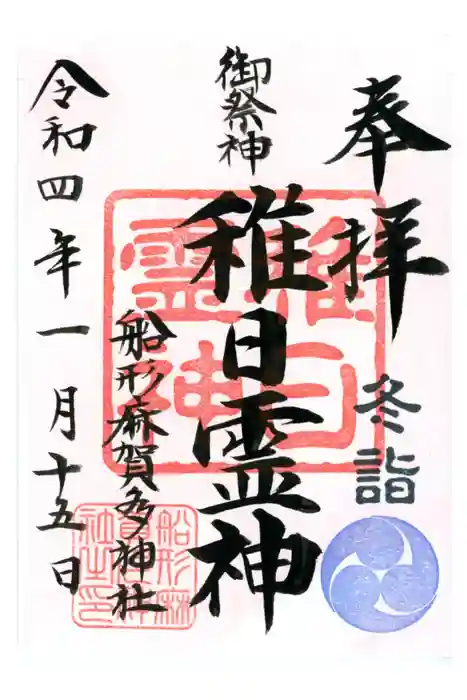 奉拝
冬詣
御祭神
稚日霊神
稚日霊神
船形麻賀多神社
船形麻賀多神社之印
令和四年一月十五日